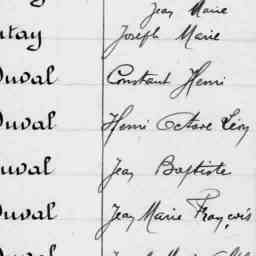 Jean Marie
Joseph Marie
Duval Constant Henri
Duval Henri Octave Léon
Duval Jean Baptiste
Duval Jean Marie François
Duval